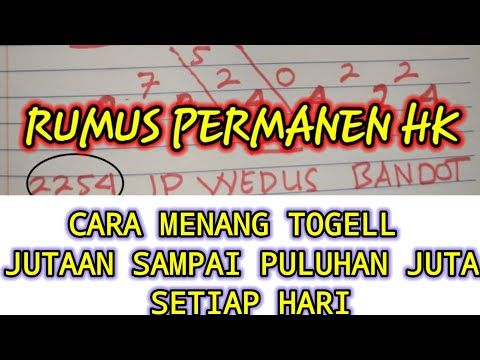 5
7 2 0 2 2
RUMUS PERMANEN HK
2254 IP WEDUS BANDOT
CARA MENANG TOGELL
JUTAAN SAMPAI PULUHAN JUTA
SETIAP HARI